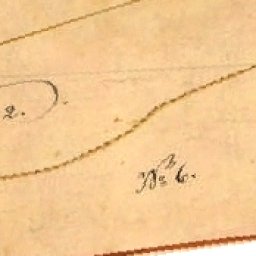 2.
No 6.